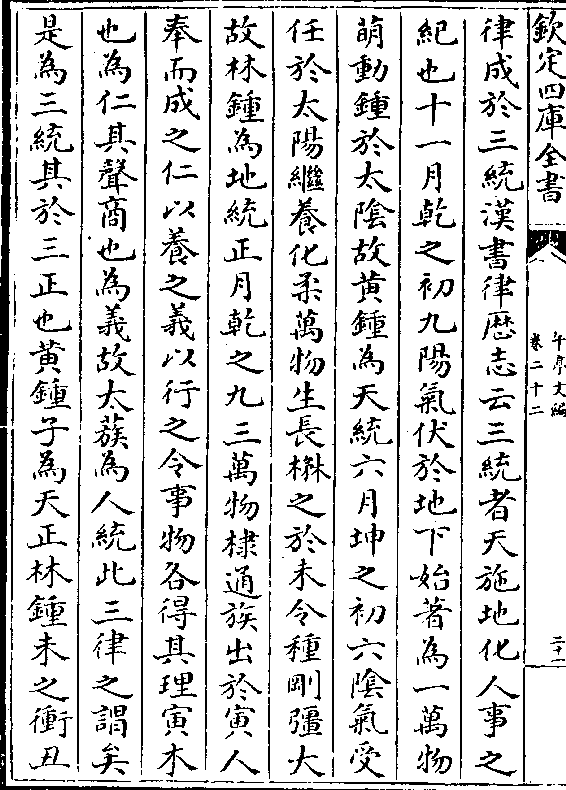 欽定四庫全書
午亭文編
卷二十二
二十一
律成於三統漢書律厯志云三統者天施地化人事之
紀也十一月乾之初九陽氣伏於地下始著為一萬物
萌動鍾於太陰故黄鍾為天統六月坤之初六隂氣受
任於太陽繼養化柔萬物生長楙之於未令種剛彊大
故林鍾為地統正月乾之九三萬物棣通族出於寅人
奉而成之仁以養之義以行之令事物各得其理寅木
也為仁其聲商也為義故太蔟為人統此三律之謂矣
是為三統其於三正也黄鍾子為天正林鍾未之衝丑